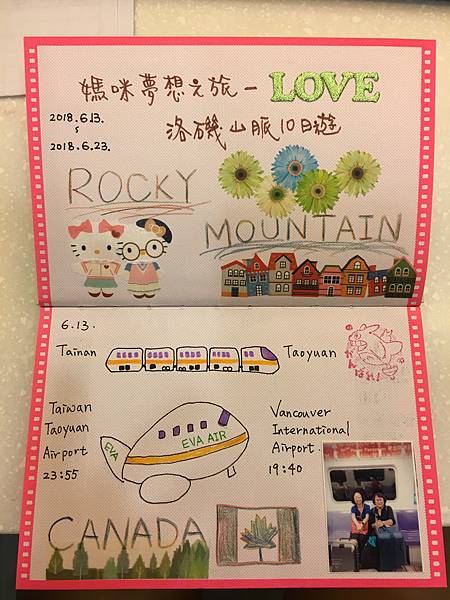 媽咪夢想之旅－LOVE
2018.6.13.
~
2018.6.23.
洛磯山脈10日遊
ROCKY
MOUNTAIN
6.13.
Tainan
Taoyuan
がんばれ!
Taiwan
Taoyuan
Airport
23:55
EVA
EVA AIR
Vancouver
International
Airport.
19:40
CANADA